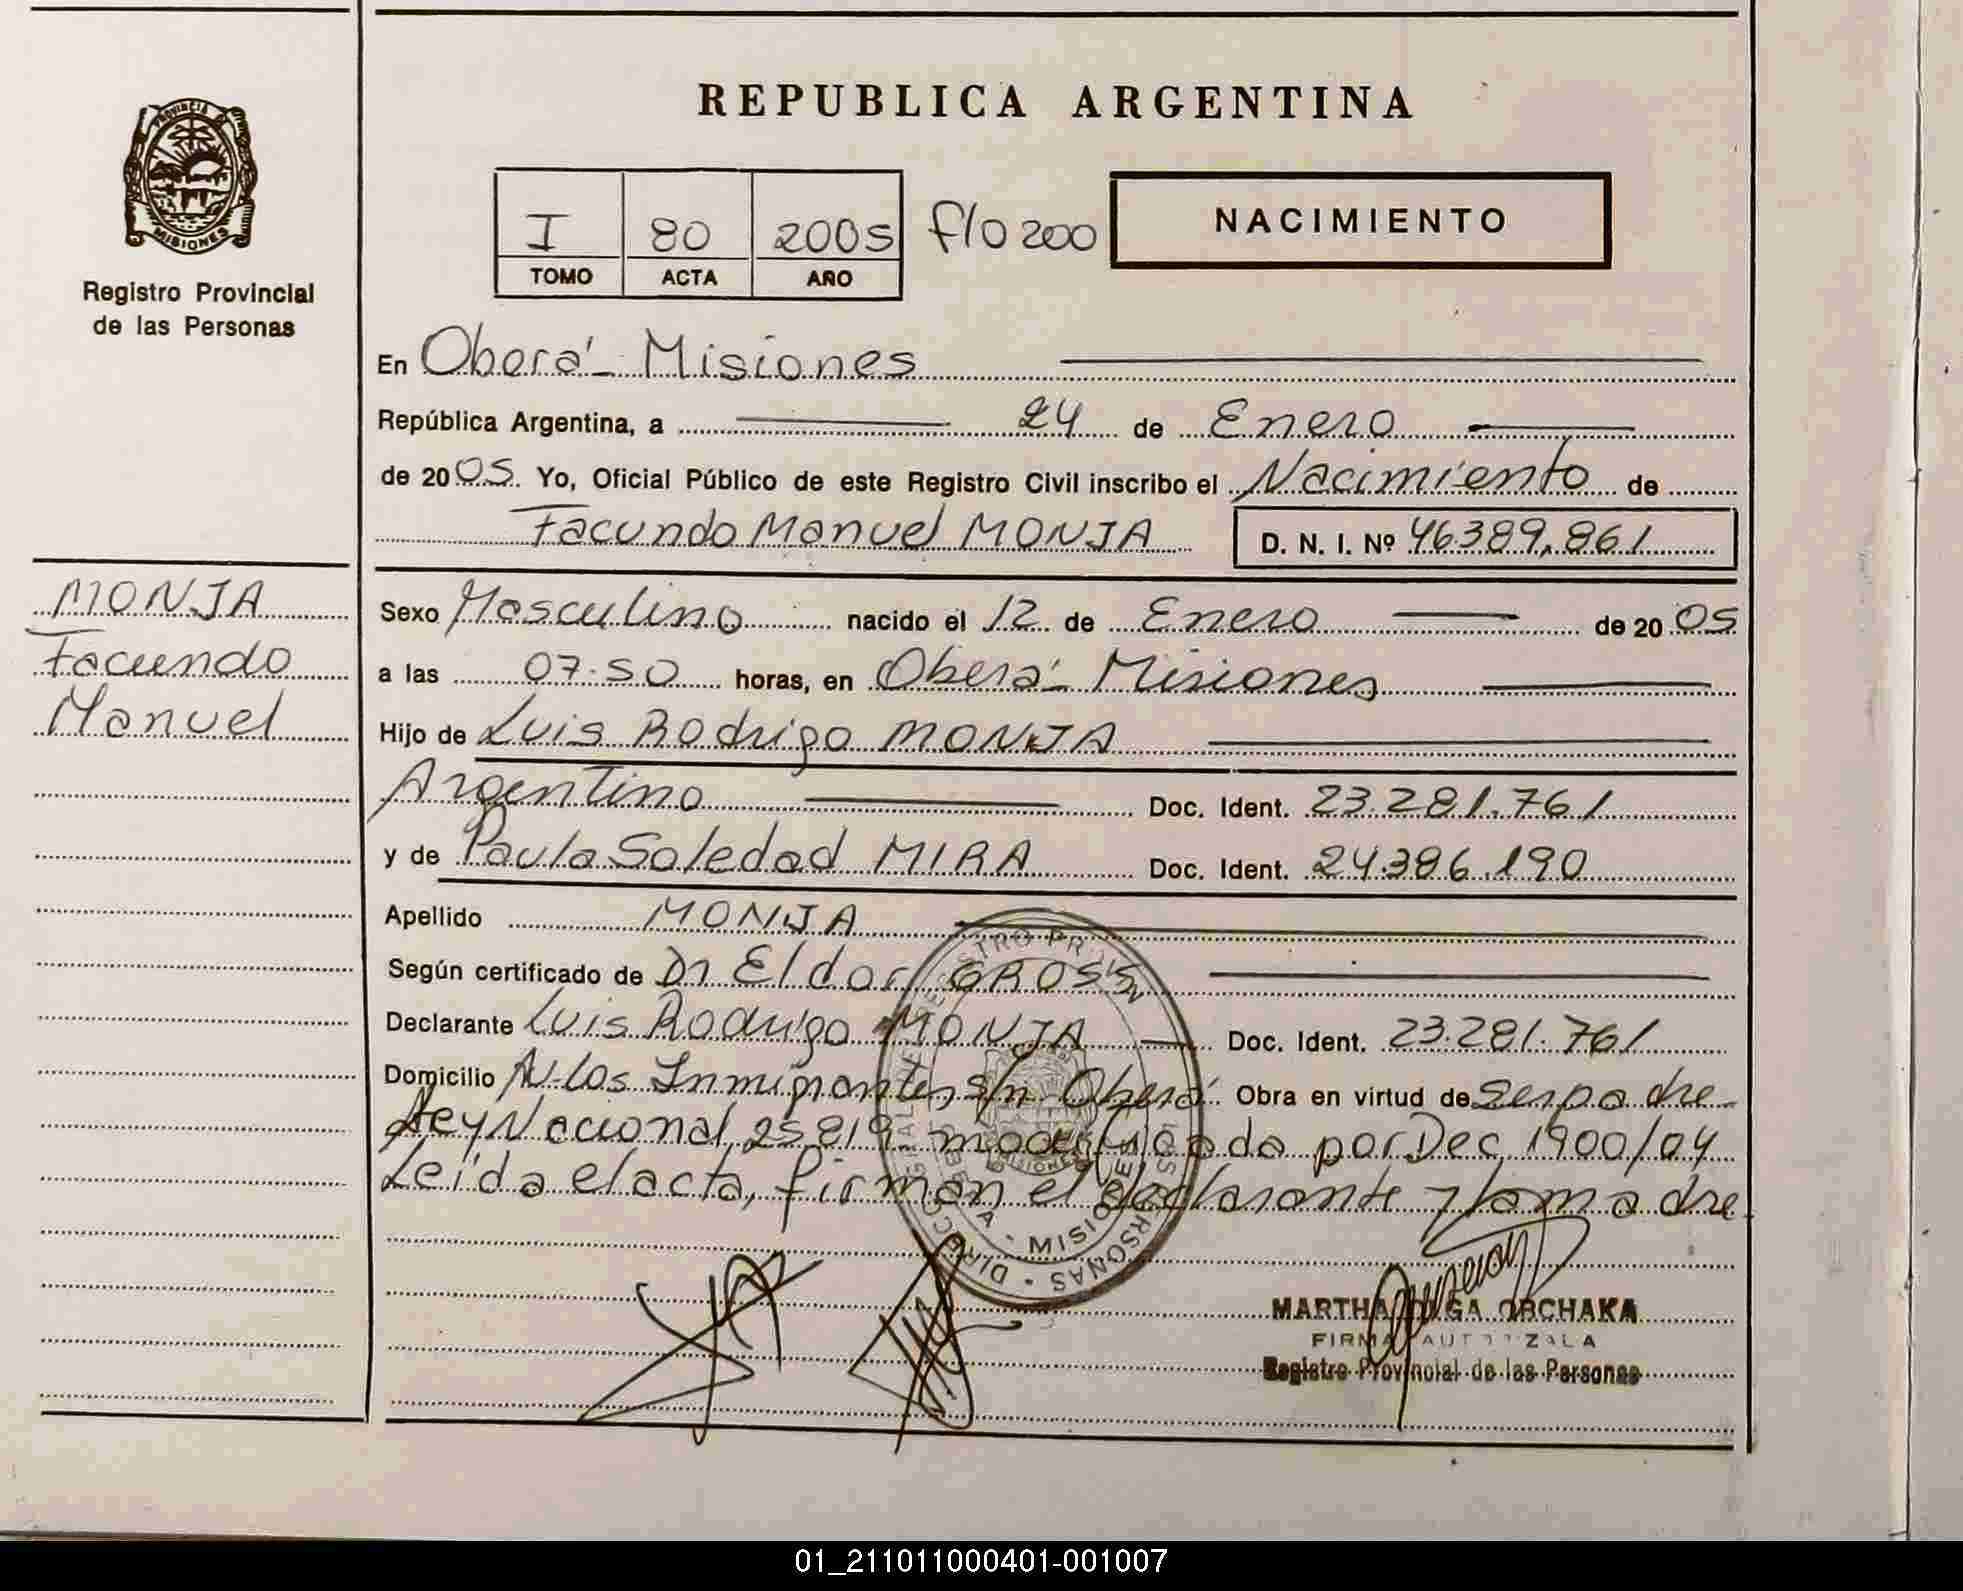 REPUBLICA ARGENTINA
PROVINCIA DE
MISIONES
Registro Provincial
de las Personas
I 80 2005 f/o 200
TOMO ACTA AÑO
NACIMIENTO
En Oberá - Misiones
República Argentina, a 24 de Enero
de 2005. Yo, Oficial Público de este Registro Civil inscribo el Nacimiento de
Facundo Manuel MONJA D. N. I. Nº 46389.861
MONJA
Facundo
Manuel
Sexo Masculino nacido el 12 de Enero de 2005
a las 07.50 horas, en Oberá - Misiones
Hijo de Luis Rodrigo MONJA
Argentino Doc. Ident. 23.281.761
y de Paula Soledad MIRA Doc. Ident. 24.386.190
Apellido MONJA
Según certificado de Dr Eldor GROSS
Declarante Luis Rodrigo MONJA Doc. Ident. 23.281.761
Domicilio Av. Los Inmigrantes s/n Oberá. Obra en virtud de ser padre
Ley Nacional 25819 modificada por Dec 1900/04
Leída el acta, firman el declarante y la madre
MISIONES
MARTHA OLGA ORCHAKA
FIRMA AUTORIZADA
Registro Provincial de las Personas
01_211011000401-001007